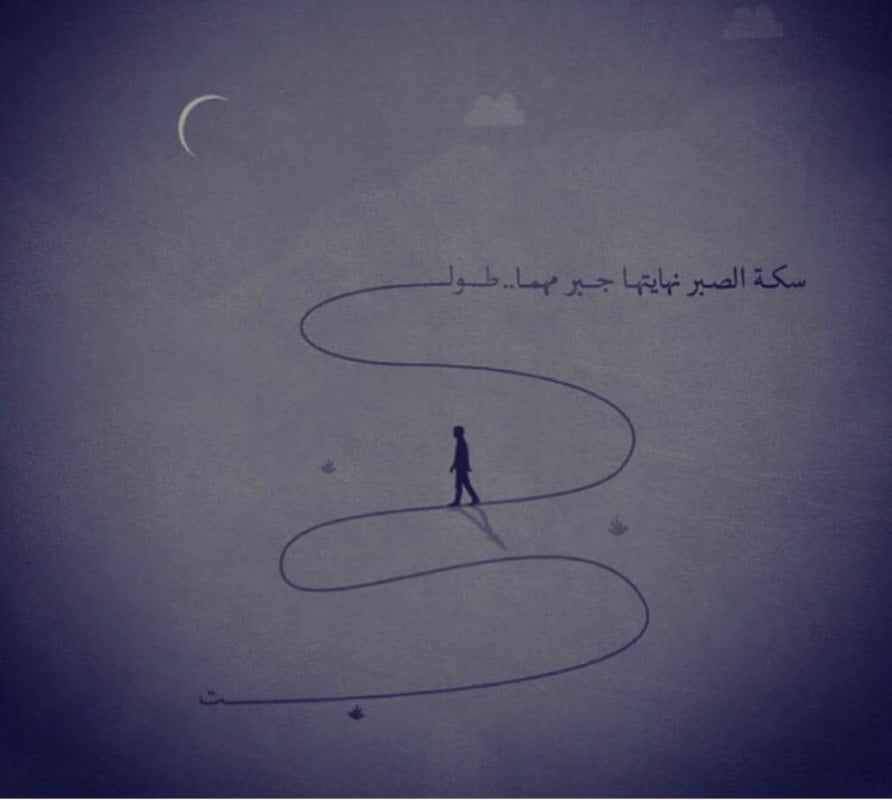 سكة الصبر نهايتها جبر مهما..طولـــت